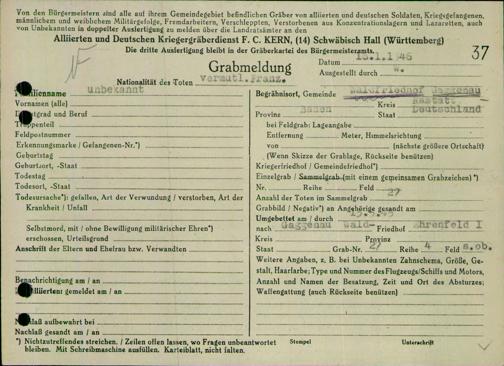 Von den Bürgermeistern sind alle auf ihrem Gemeindegebiet befindlichen Gräber von alliierten und deutschen Soldaten, Kriegsgefangenen,
männlichem und weiblichem Militärgefolge, Fremdarbeitern, Verschleppten, Verstorbenen aus Konzentrationslagern und Lazaretten, auch
von Unbekannten in doppelter Ausfertigung zu melden über die Landratsämter an den
Alliierten und Deutschen Kriegergräberdienst F. C. KERN, (14) Schwäbisch Hall (Württemberg)
Die dritte Ausfertigung bleibt in der Gräberkartei des Bürgermeisteramts.
37
Grabmeldung
Datum 15.1.1946
Ausgestellt durch w.
Nationalität des Toten vermutl. Franz.
Familienname unbekannt
Vornamen (alle)
Dienstgrad und Beruf
Truppenteil
Feldpostnummer
Erkennungsmarke / Gefangenen-Nr.*)
Geburtstag
Geburtsort, -Staat
Todestag
Todesort, -Staat
Todesursache*): gefallen, Art der Verwundung / verstorben, Art der
Krankheit / Unfall
Selbstmord, mit / ohne Bewilligung militärischer Ehren*)
erschossen, Urteilsgrund
Anschrift der Eltern und Ehefrau bzw. Verwandten
Benachrichtigung am / an
Alliierten: gemeldet am / an
Nachlaß aufbewahrt bei
Nachlaß gesandt am / an
*) Nichtzutreffendes streichen. / Zeilen offen lassen, wo Fragen unbeantwortet
bleiben. Mit Schreibmaschine ausfüllen. Karteiblatt, nicht falten.
Begräbnisort, Gemeinde Waldfriedhof Gaggenau
Kreis Rastatt
Provinz Baden Staat Deutschland
bei Feldgrab: Lageangabe
Entfernung Meter, Himmelsrichtung
von (nächste größere Ortschaft)
(Wenn Skizze der Grablage, Rückseite benützen)
Kriegerfriedhof / Gemeindefriedhof*)
Einzelgrab / Sammelgrab (mit einem gemeinsamen Grabzeichen) *)
Nr. Reihe Feld 27
Anzahl der Toten im Sammelgrab
Grabbild / Negativ*) an Angehörige gesandt am
Umgebettet am / durch
nach Gaggenau Wald- Friedhof Ehrenfeld I
Kreis Provinz
Staat Grab-Nr. 27 Reihe 4 Feld s.ob.
Weitere Angaben, z. B. bei Unbekannten Zahnschema, Größe, Ge-
stalt, Haarfarbe; Type und Nummer des Flugzeugs/Schiffs und Motors,
Anzahl und Namen der Besatzung, Zeit und Ort des Absturzes;
Waffengattung (auch Rückseite benützen)
Stempel Unterschrift